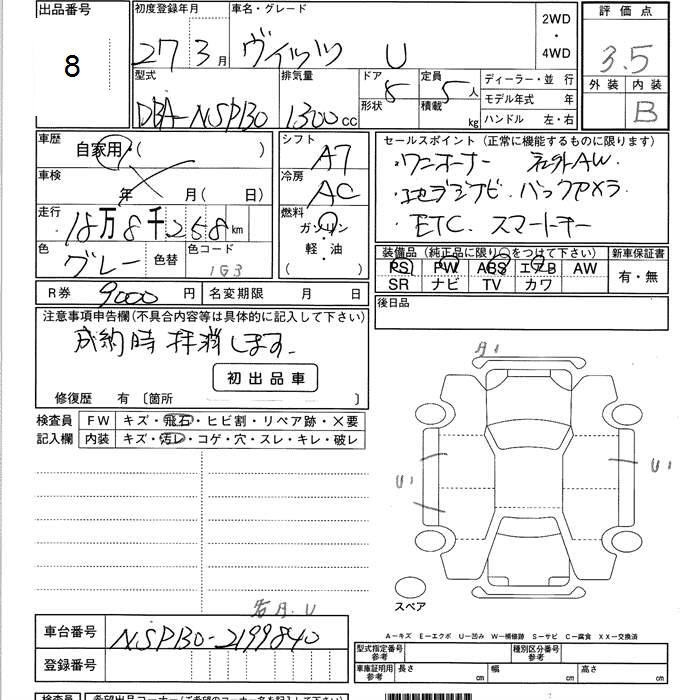 出品番号 初度登録年月 車名・グレード 2WD・4WD 評価点
8 27 3月 ヴィッツ U 3.5
外装 内装
B
型式 排気量 ドア形状 定員積載 ディーラー・並 行
DBA-NSP130 1300cc 5人 kg モデル年式 年
ハンドル 左・右
車歴 シフト セールスポイント (正常に機能するものに限ります)
自家用・( ) AT ・ワンオーナー 社外AW.
車検 冷房 ・地デジナビ.バックカメラ
年 月( 日) AC ・ETC. スマートキー
走行 燃料
18万8千258km ガソリン・軽・油 ( )
色 色替 色コード 装備品 (純正品に限り○をつけて下さい) 新車保証書
グレー 1G3 PS PW ABS エアB AW 有・無
SR ナビ TV カワ
R券 9000円 名変期限 月 日
後日品
注意事項申告欄(不具合内容等は具体的に記入して下さい)
成約時 抹消します.
初出品車
修復歴 有 〔箇所 〕
検査員記入欄 FW キズ・飛石・ヒビ割・リペア跡・X要
内装 キズ・汚レ・コゲ・穴・スレ・キレ・破レ
A1
U1 U1
スペア
A-キズ E-エクボ U-凹み W-補修跡 S-サビ C-腐食 XX-交換済
車台番号 NSP130-2199840
型式指定番号参考 種別区分番号参考
登録番号
車庫証明用参考 長さ cm 幅 cm 高さ cm